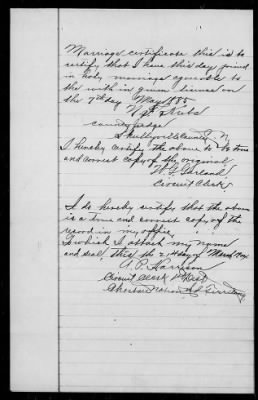 Marriage certificate this is to
certify that I have this day joined
in holy marriage agreeable to
the with in given license on
the 7th day May 1885
County Judge
Skullyville County C. N.
I hereby certify the above to be true
and correct copy of the original
Circuit Clerk
I do hereby certify that the above
is a true and correct copy of the
record in my office,
To which I attach my name
and seal, this the 21st day of March
A P. Harrison
Circuit Clerk 1st Dist
Choctaw Nation Ind Territory